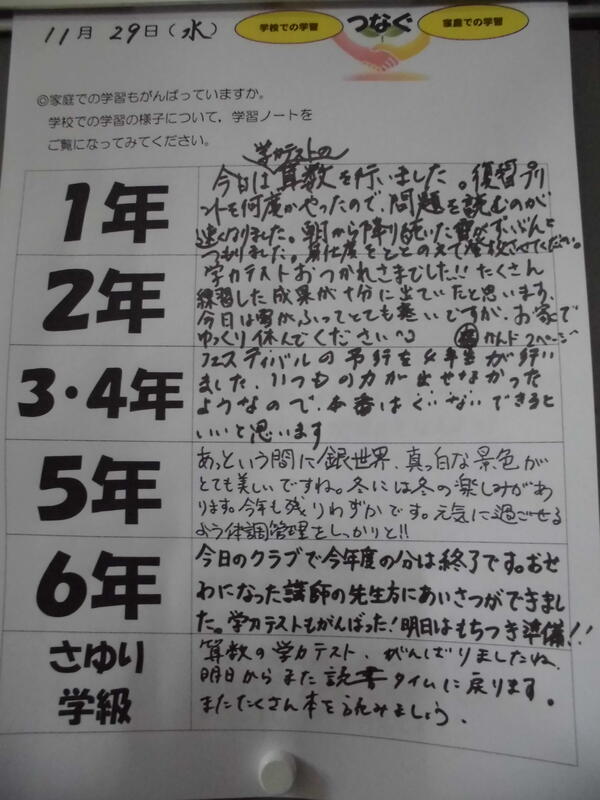 11月 29日(水)
学校での学習 つなぐ 家庭での学習
◎家庭での学習もがんばっていますか。
学校での学習の様子について，学習ノートを
ご覧になってみてください。
1年
学力テストの
今日は算数を行いました。復習プリ
ントを何度かやったので、問題を読むのが
速くなりました。朝から降り続いた雪がずいぶんと
つもりました。身仕度をととのえて登校させてください。
2年
学力テストおつかれさまでした!!たくさん
練習した成果が十分に出ていたと思います。
今日は雪がふってとても寒いですが、お家で
ゆっくり休んでください
かんド 2ページ
3・4年
フェスティバルの予行を4年生が行い
ました。いつもの力が出せなかった
ようなので、本番は できると
いいと思います
5年
あっという間に銀世界、真っ白な景色が
とても美しいですね。冬には冬の楽しみがあ
ります。今年も残りわずかです。元気に過ごせる
よう体調管理をしっかりと!!
6年
今日のクラブで今年度の分は終了です。おせ
わになった講師の先生方にあいさつができまし
た。学力テストもがんばった!明日はもちつき準備!!
さゆり
学級
算数の学力テスト、がんばりましたね。
明日からまた読書タイムに戻ります。
またたくさん本を読みましょう。